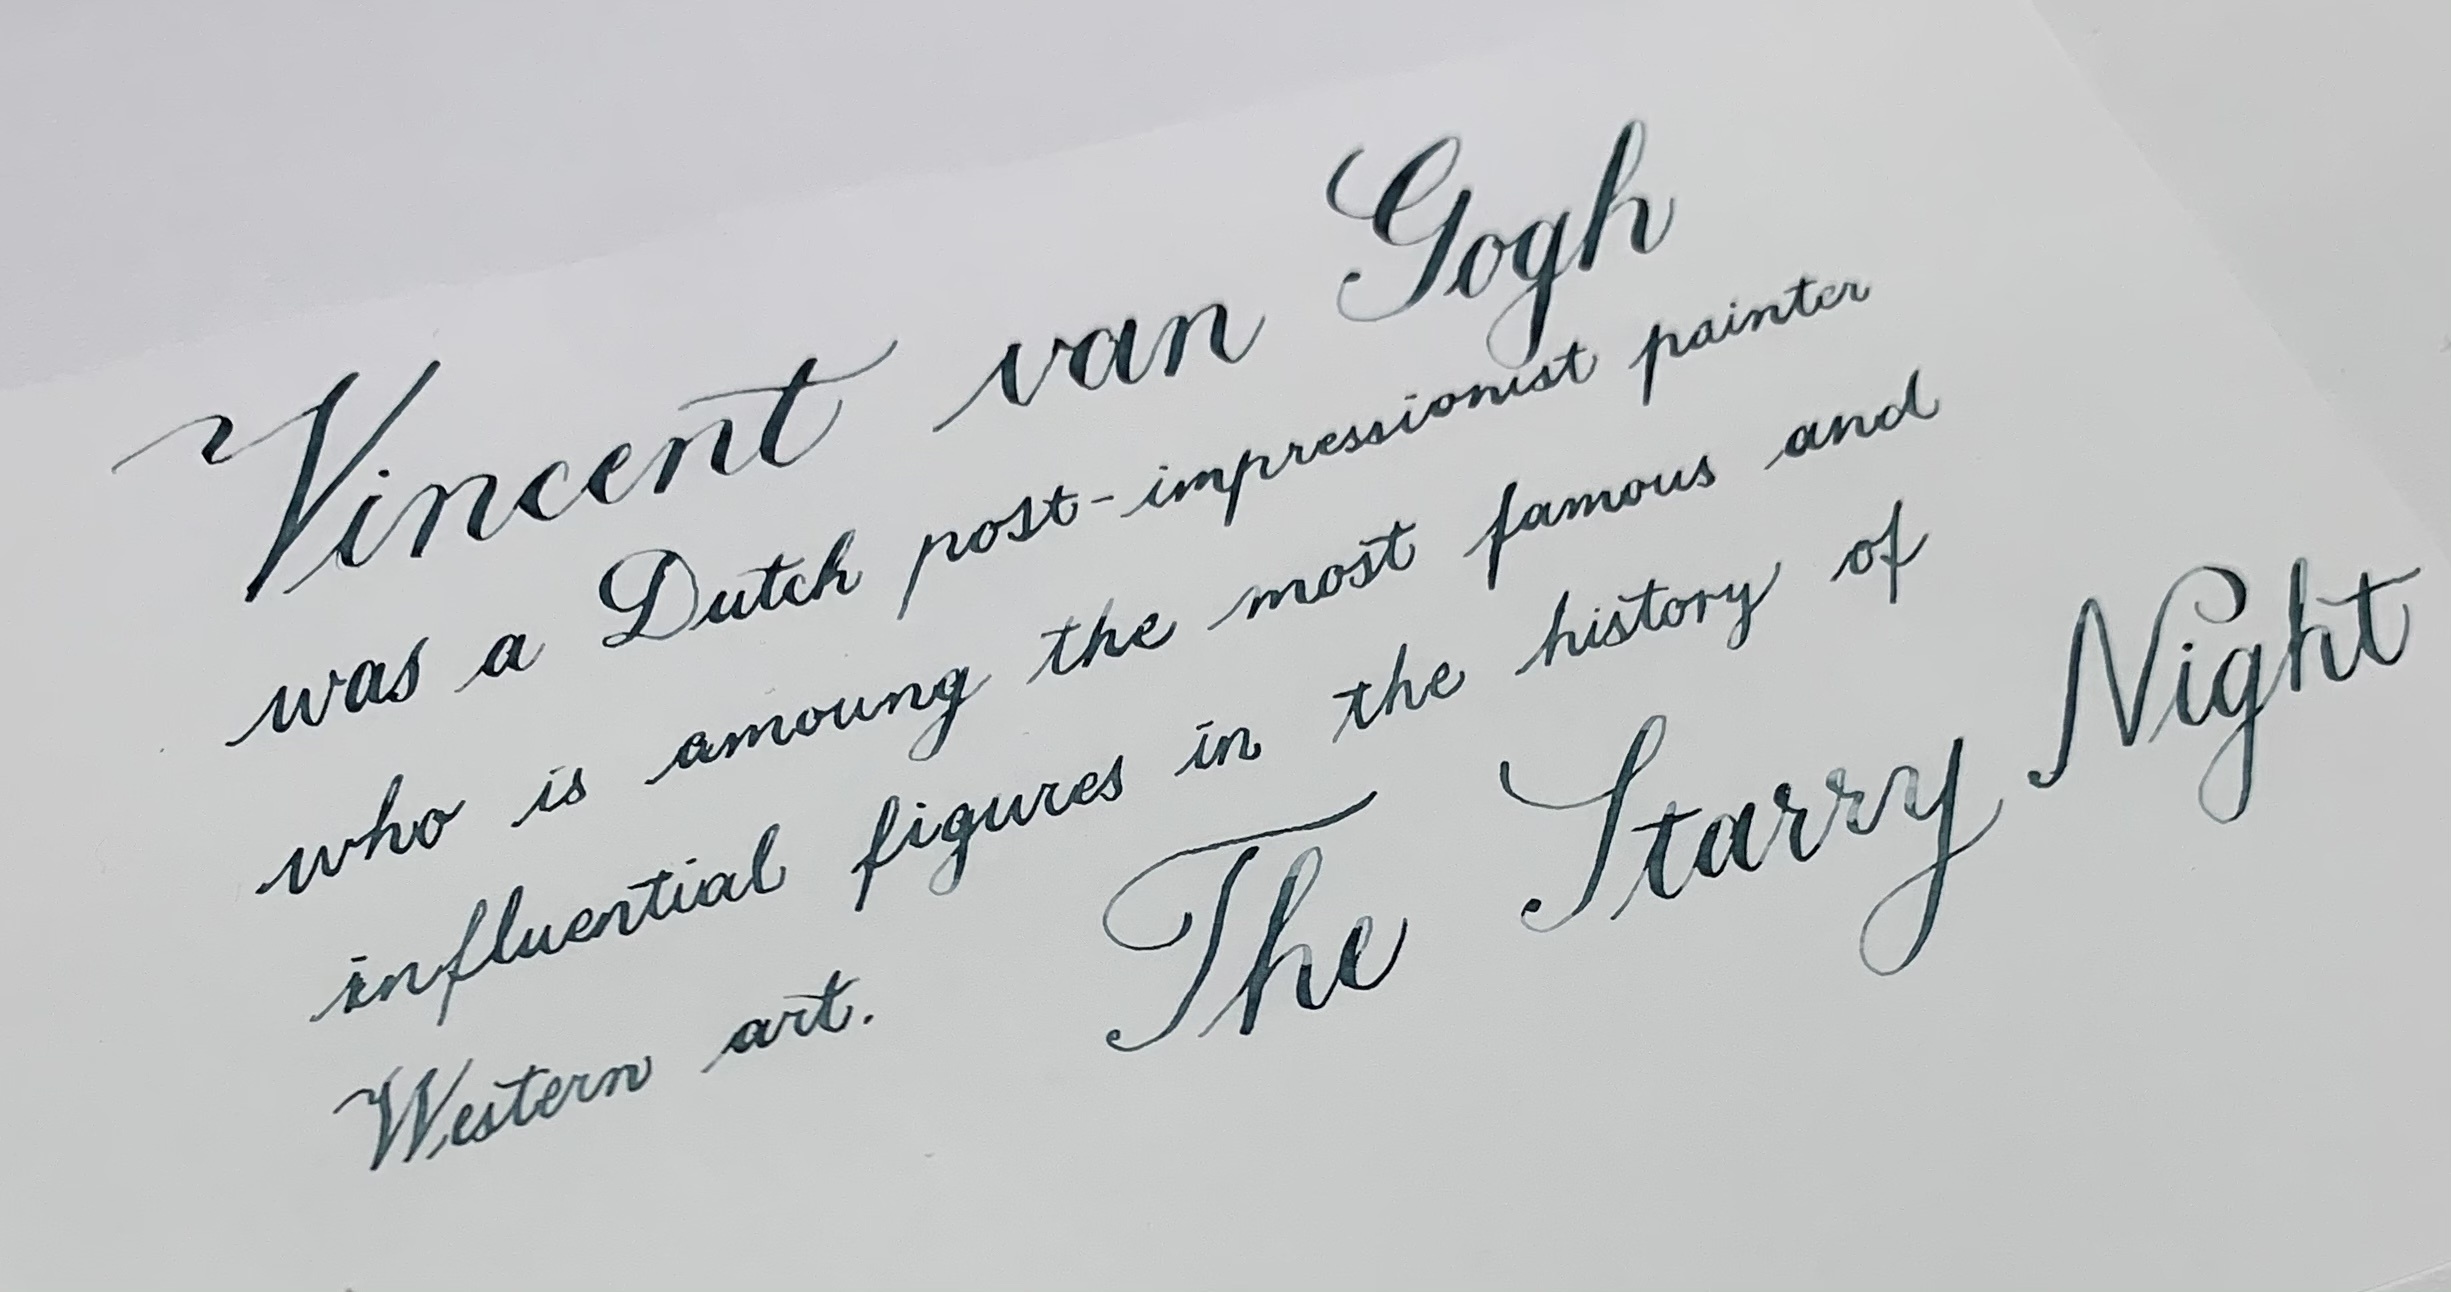 Vincent van Gogh
was a Dutch post-impressionist painter
who is amoung the most famous and
influential figures in the history of
Western art.
The Starry Night